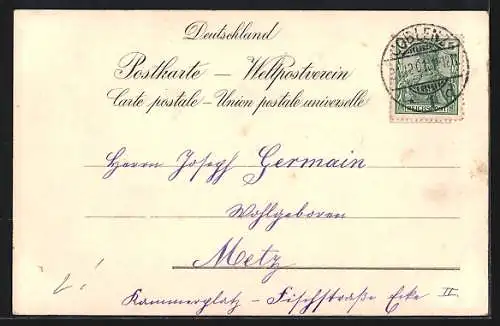 Deutschland
Postkarte — Weltpostverein
Carte postale — Union postale universelle
COBLENZ
Herrn Joseph Germain
Wohlgeboren
Metz
Kammerplatz - Fischstraße Ecke II.